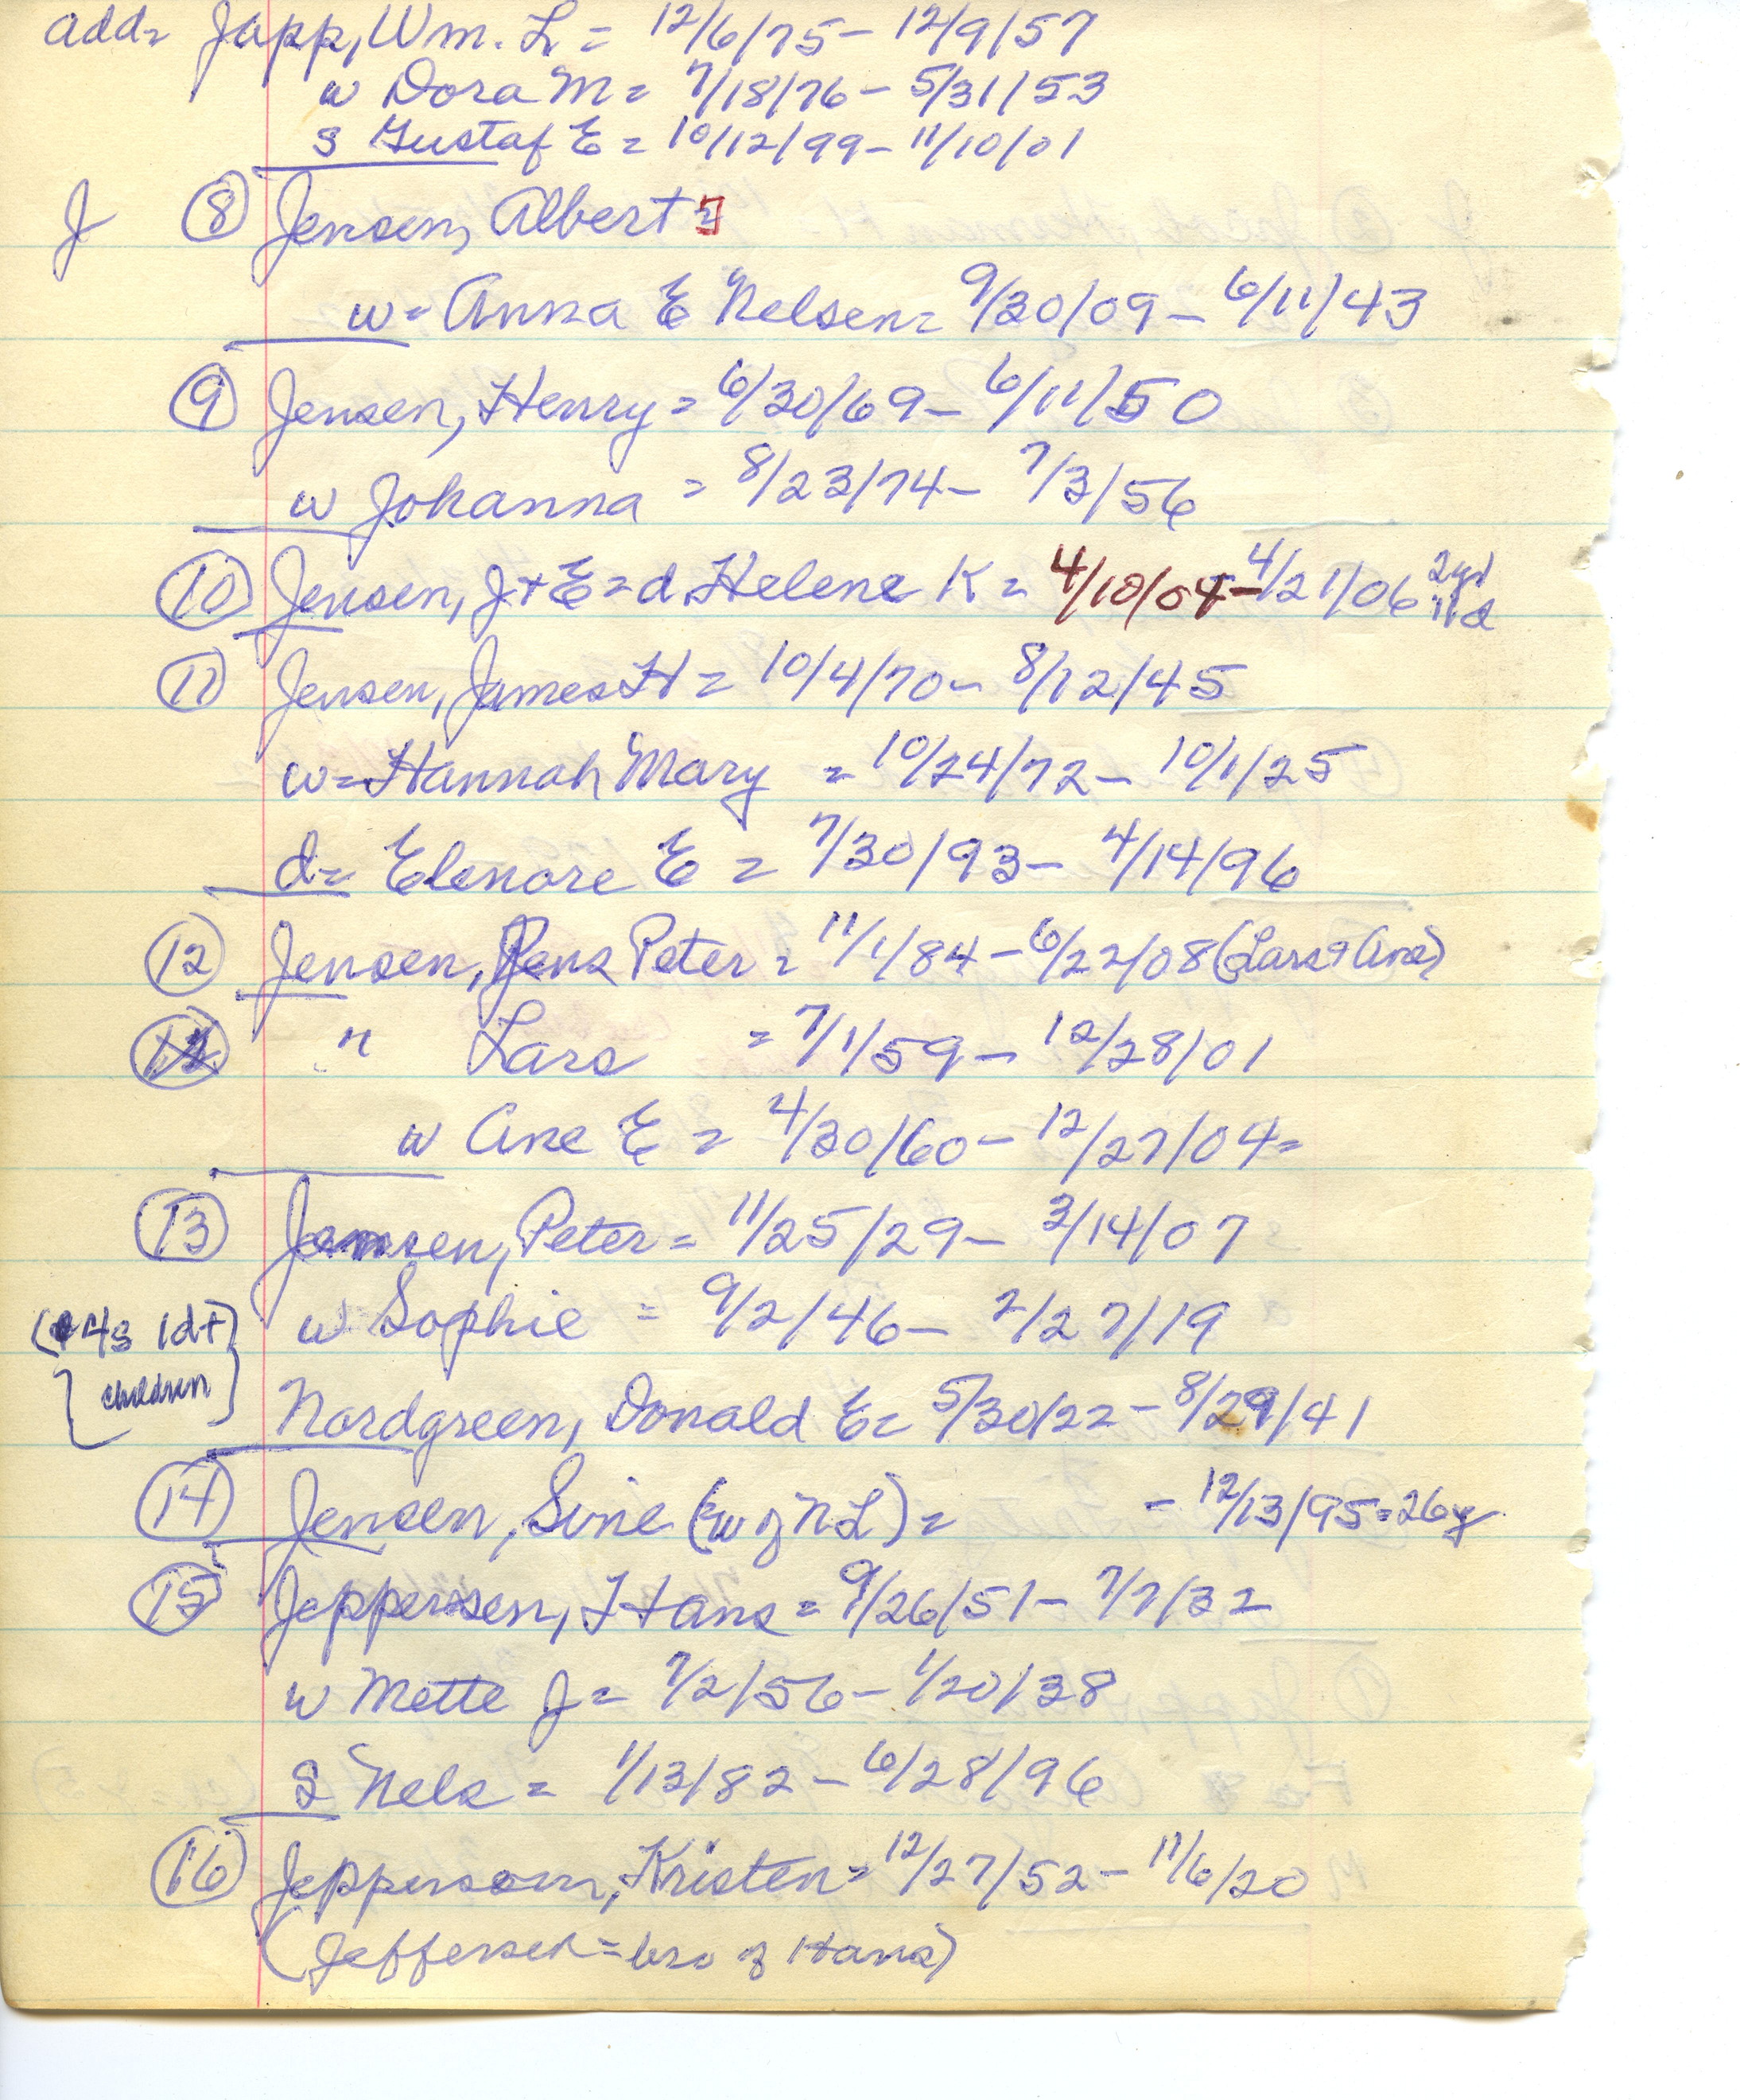 add= Japp, Wm. L = 12/6/75 - 12/9/57
w Dora M = 7/18/76 - 5/31/53
s Gustaf E = 10/12/99 - 11/10/01
J ⑧ Jensen, Albert =
w = Anna E Nelsen = 9/30/09 - 6/11/43
⑨ Jensen, Henry = 6/30/69 - 6/11/50
w Johanna = 8/23/74 - 7/3/56
⑩ Jensen, J + E = d Helene K = 4/10/04 - 4/21/06 2y 11d
⑪ Jensen, James H = 10/4/70 - 8/12/45
w = Hannah Mary = 10/24/72 - 10/1/25
d = Elenore E = 7/30/93 - 4/14/96
⑫ Jensen, Jens Peter = 11/1/84 - 6/22/08 (Lars & Ane)
" Lars = 7/1/59 - 12/28/01
w Ane E = 4/30/60 - 12/27/04 =
⑬ Jensen, Peter = 11/25/29 - 3/14/07
w Sophie = 9/2/46 - 2/27/19
(4s 1d+)
children
Nordgreen, Donald E = 5/30/22 - 8/29/41
⑭ Jensen, Sine (w of N L) = - 12/13/95 = 26y
⑮ Jeppersen, Hans = 9/26/51 - 7/7/32
w Mette J = 7/2/56 - 1/20/38
s Nels = 1/13/82 - 6/28/96
⑯ Jeppersom, Kristen = 12/27/52 - 11/6/20
(Jeffersen = bro of Hans)